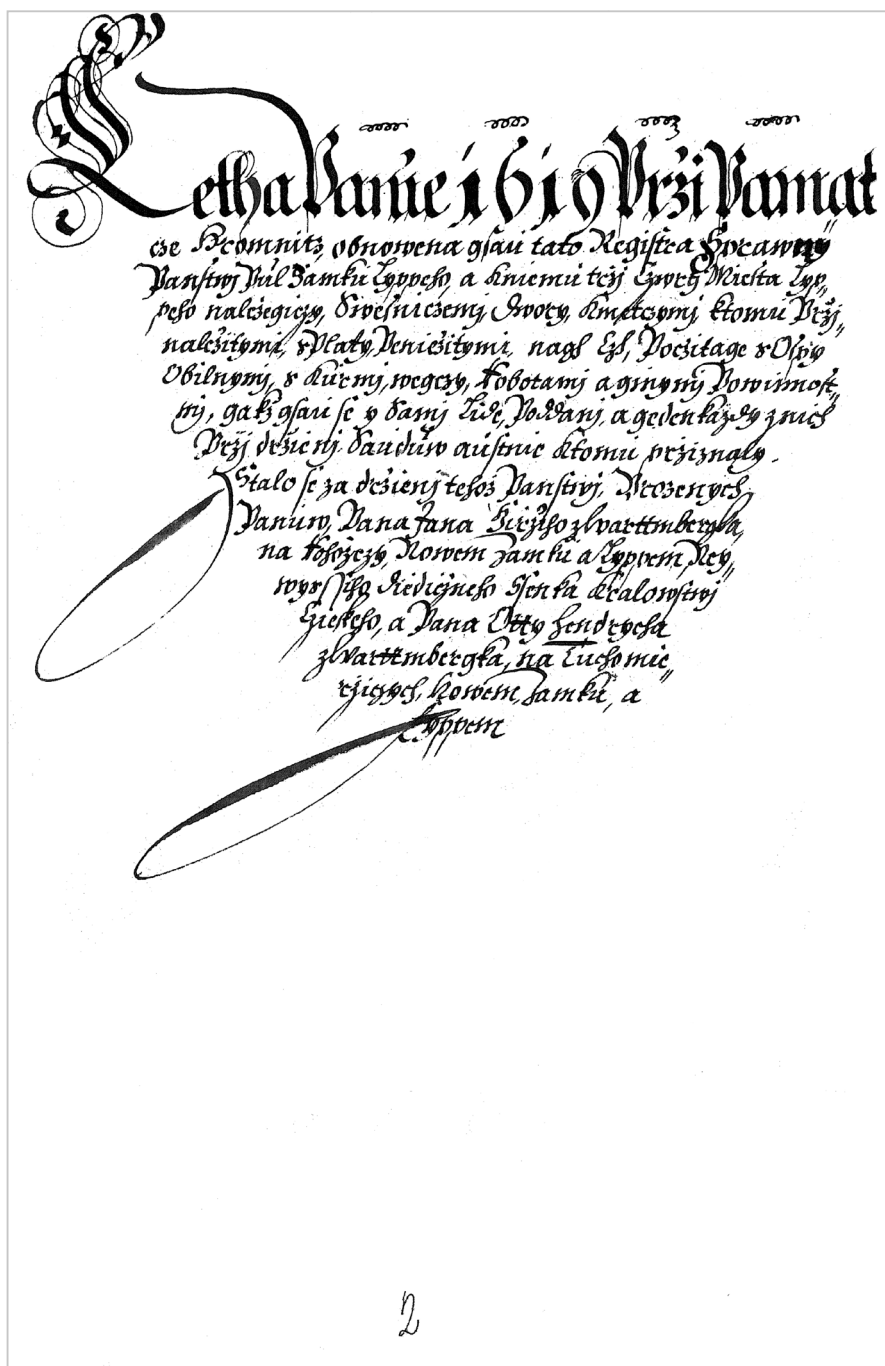 Letha Panie 1619 Przi Pamat
cze Hromnitz, obnowena gsau tato Registra Sprawny
Panstwj Pul Zamku Lyppeho, a kniemu trzj Cztwrti Miesta Lyp„
peho nalezegiczy, Swesniczemi, dwory, kmetczymi, ktomu Przj„
nalezitymi, s Platy Peniezitymi, nagk Czl, Poczitage s Ospy
Obilnymj, s kurmj, wegczy, Robotami a ginymi Powinnost„
mj, gakz gsau se y Sami Lide, Poddanj, a gedenkazdy znich
Przj drzienj Sauduw austnie ktomu prziznaly.
Stalo se za drzienj tehoz Panstwj, Urozenych
Panuw, Pana Jana Girziho zWarttmbergka,
na Rohozczy, Nowem Zamku a Lyppem, Ney„
wyrssiho diediczneho Ssenka Kralowstwj
Czieskeho, a Pana Otty Hendrycha
zWarttmbergka, na Tuchomie„
rziczych, Nowem Zamku, a
Lyppem
2